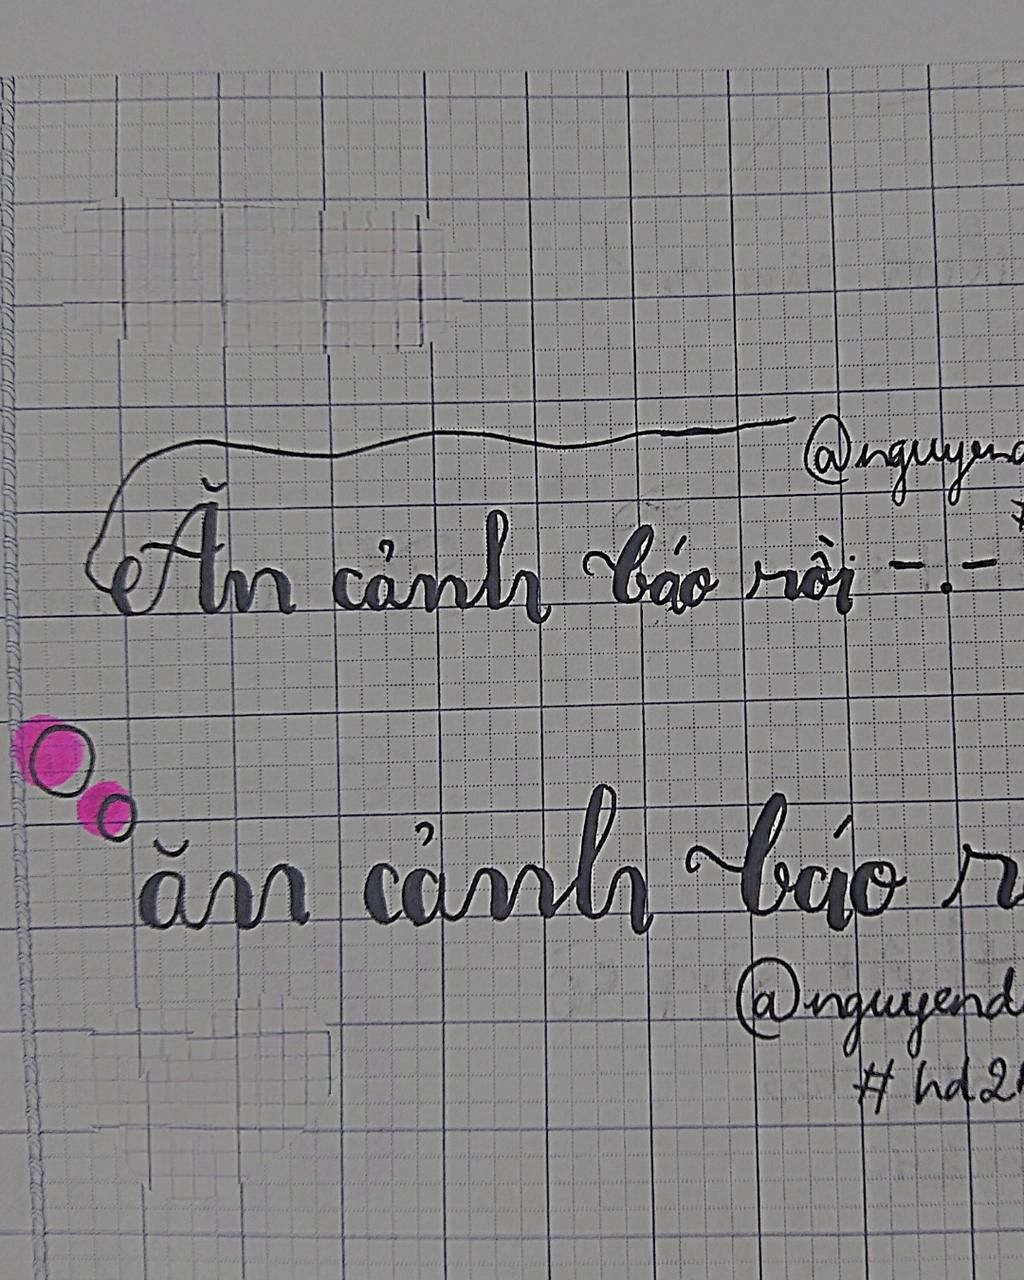 @nguyend
Ăn cảnh báo rồi -.-
ăn cảnh báo r
@nguyend
# hd2